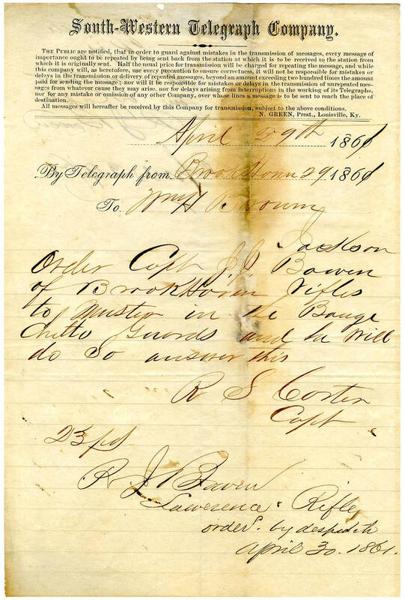 South-Western Telegraph Company.
THE PUBLIC are notified, that in order to guard against mistakes in the transmission of messages, every message of
importance ought to be repeated by being sent back from the station at which it is to be received to the station from
which it is originally sent. Half the usual price for transmission will be charged for repeating the message, and while
this company will, as heretofore, use every precaution to ensure correctness, it will not be responsible for mistakes or
delays in the transmission or delivery of repeated messages, beyond an amount exceeding two hundred times the amount
paid for sending the message; nor will it be responsible for mistakes or delays in the transmission of unrepeated mes-
sages from whatever cause they may arise, nor for delays arising from interruptions in the working of its Telegraphs,
nor for any mistake or omission of any other Company, over whose lines a message is to be sent to reach the place of
destination.
All messages will hereafter be received by this Company for transmission, subject to the above conditions.
N. GREEN, Prest., Louisville, Ky.
April 29th 1861
By Telegraph from Brookhaven 29 1861
To Wm H Brown
Jackson
Order Capt J. J. Bowen
of Brookhaven Rifles
to Muster in the Bouge
Chitto Guards and he will
do so answer this
R S Corten
Capt
23 pd
R J Bowen
Lawerence Rifle
order by despatch
April 30. 1861.